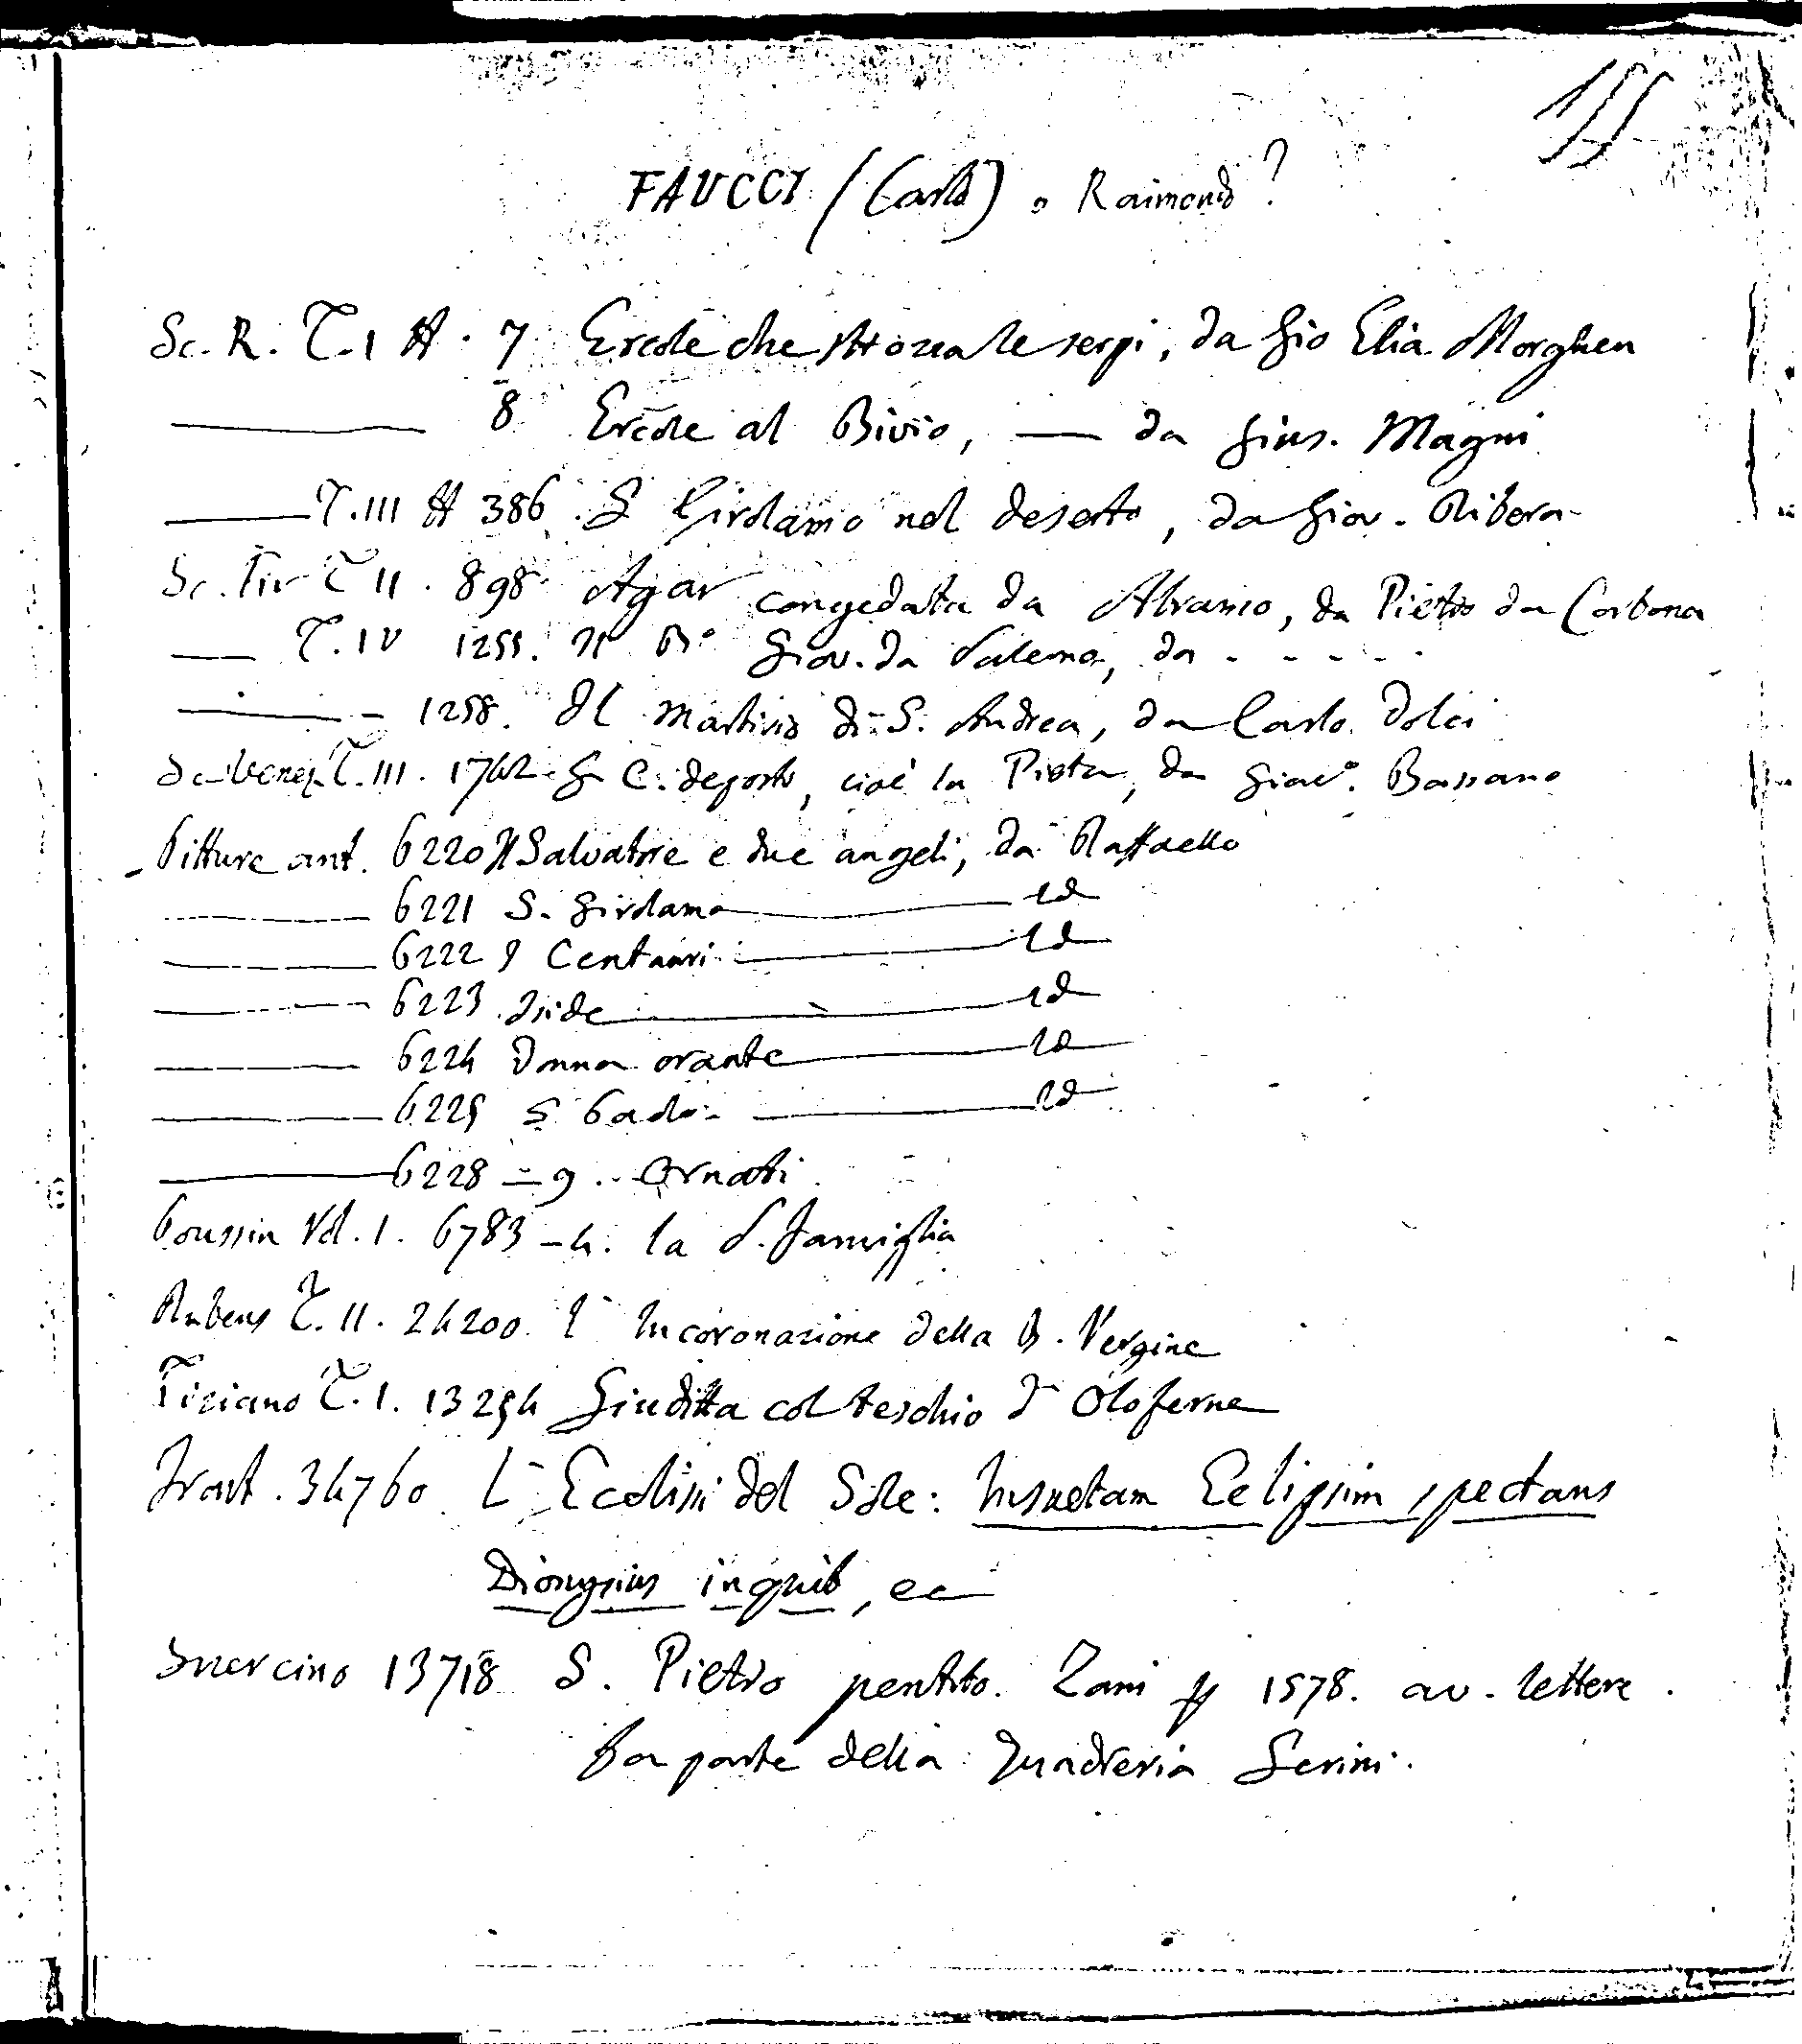 55
FAUCCI (Carlo) o Raimondo?
Sc. R. T. I H. 7 Ercole che strozza le serpi, da Gio Elia Morghen
8 Ercole al Bivio, — da Gius. Magni
T. III H 386 S Girolamo nel deserto, da Giov. Ribera
Sc. Fior T II. 898 Agar congedata da Abramo, da Pietro da Cortona
T. IV 1255. Il Bº Giov. da Salerno, da - - - - -
1258. Il Martirio di S. Andrea, da Carlo Dolci
Sc. Venez. T. III. 1742 G. C. deposto, cioè la Pietà, da Giacº. Bassano
Pitture ant. 6220 Il Salvatore e due angeli, da Raffaello
6221 S. Girolamo id
6222 I Centauri id
6223 Iside id
6224 Donna orante id
6225 S Paolo id
6228 – 9 .. Ornati
Poussin Vol. I. 6783 – 4. la S. Famiglia
Rubens T. II. 24200. L' Incoronazione della B. Vergine
Tiziano T. I. 13254 Giuditta col teschio d' Oloferne
34760 L' Ecclissi del Sole: Insuetam Eclipsim spectans
Dionysius inquit, ec
Guercino 13718 S. Pietro pentito. Zani 1578. av. lettere.
Fa parte della Quadreria Gerini.